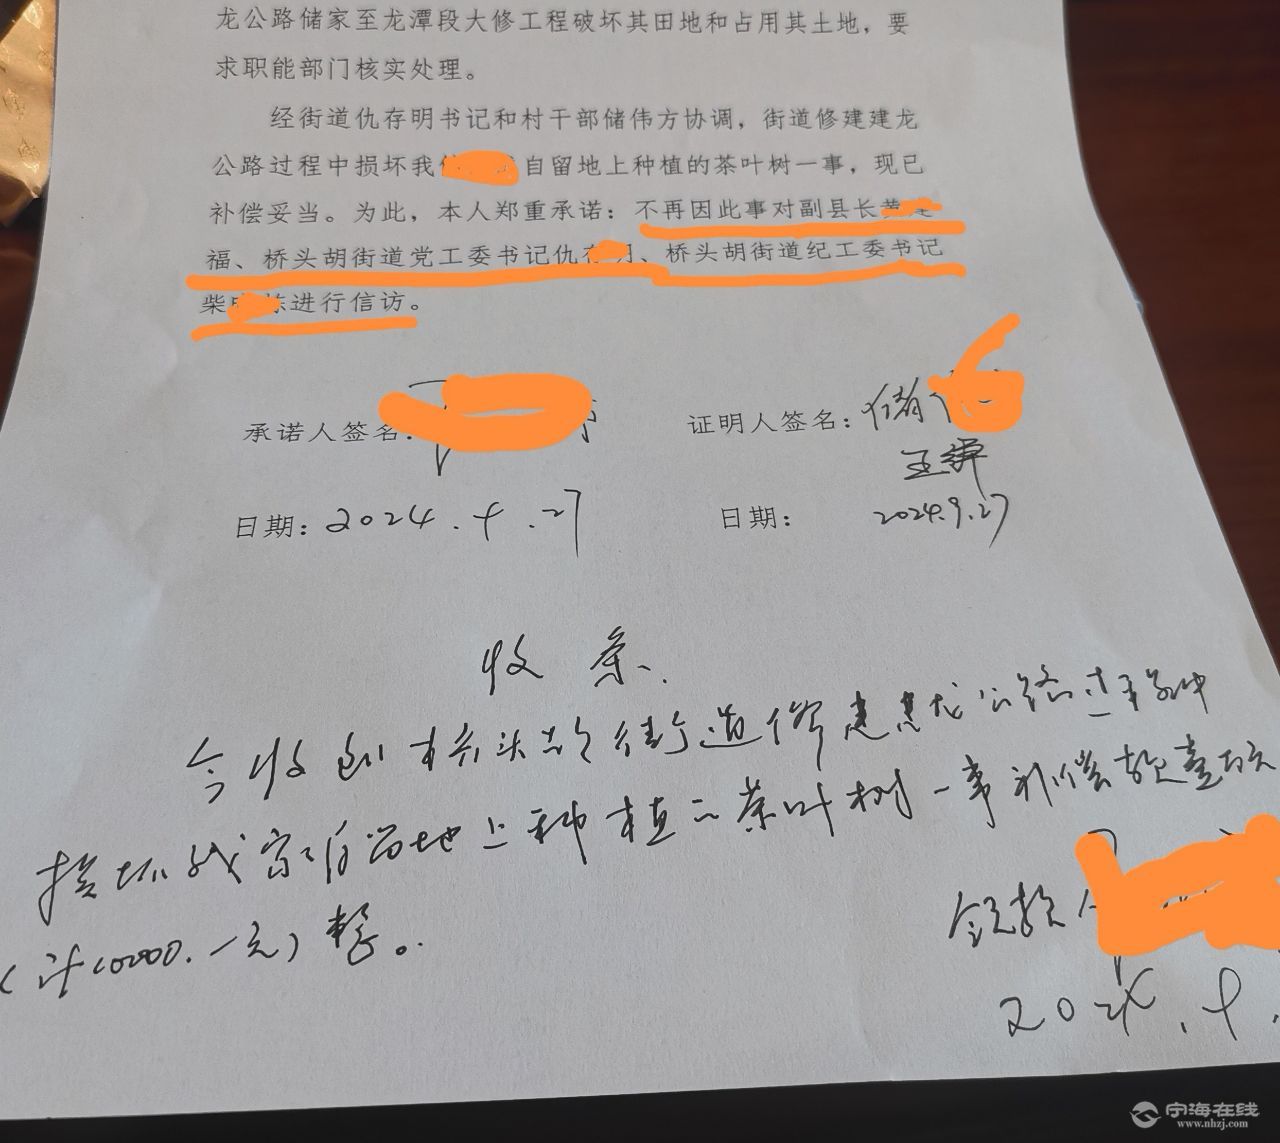 龙公路储家至龙潭段大修工程破坏其田地和占用其土地，要
求职能部门核实处理。
经街道仇存明书记和村干部储伟方协调，街道修建建龙
公路过程中损坏我 自留地上种植的茶叶树一事，现已
补偿妥当。为此，本人郑重承诺：不再因此事对副县长
福、桥头胡街道党工委书记仇 、桥头胡街道纪工委书记
柴 进行信访。
承诺人签名： 证明人签名：储
王
日期：2024. .27 日期： 2024.9.27
收条
今收到桥头胡街道修建建龙公路过程中
损坏我家自留地上种植的茶叶树一事补偿款壹万元
(计10000.-元)整。
领款人
宁海在线
www.nhzj.com